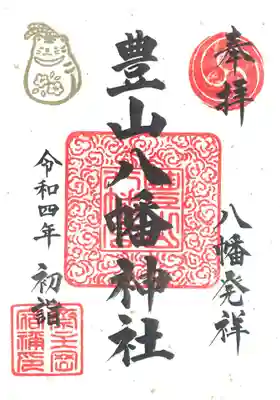 奉拝
八幡発祥
豊山八幡神社
令和四年 初詣